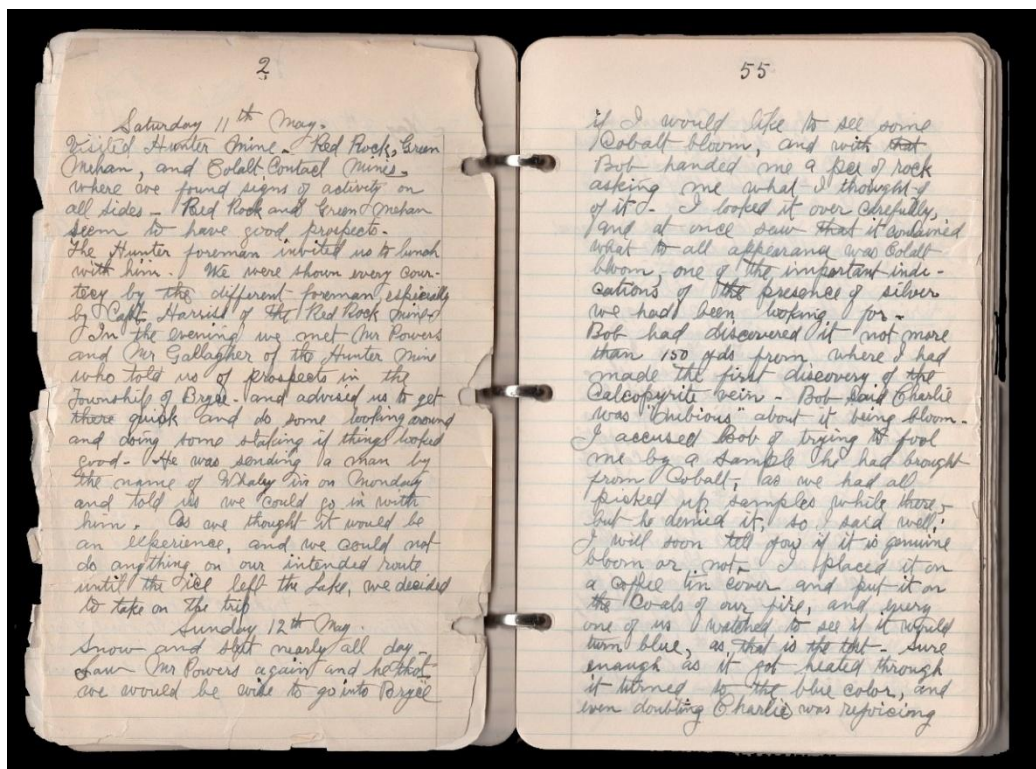 2
Saturday 11th May.
Visited Hunter Mine - Red Rock, Green
Mehan, and Cobalt Contact Mines,
where we found signs of activity on
all sides - Red Rock and Green Mehan
seem to have good prospects.
The Hunter foreman invited us to lunch
with him. We were shown every cour-
tecy by the different foreman especially
by Capt Harriss of the Red Rock Mine.
In the evening we met Mr Powers
and Mr Gallagher of the Hunter Mine
who told us of prospects in the
Township of Bryce - and advised us to get
there quick and do some looking around
and doing some staking if things looked
good - He was sending a man by
the name of Whaley in on Monday
and told us we could go in with
him. As we thought it would be
an experience, and we could not
do anything on our intended route
until the ice left the Lake, we decided
to take on the trip
Sunday 12th May.
Snow and slept nearly all day -
Saw Mr Powers again and he thot
we would be wise to go into Bryce
55
if I would like to see some
Cobalt bloom, and with that
Bob handed me a pce of rock
asking me what I thought of
of it. I looked it over carefully,
and at once saw that it contained
what to all appearance was Cobalt
bloom, one of the important indi-
cations of the presence of silver
we had been looking for -
Bob had discovered it not more
than 150 yds from where I had
made the first discovery of the
Calcopyrite vein - Bob said Charlie
was "Dubious" about it being bloom -
I accused Bob of trying to fool
me by a sample he had brought
from Cobalt, as we had all
picked up samples while there -
but he denied it, so I said well;
I will soon tell you if it is genuine
bloom or not, I placed it on
a coffee tin cover and put it on
the Coals of our fire, and every
one of us watched to see if it would
turn blue, as that is the test - Sure
enough as it got heated through
it turned to the blue color, and
even doubting Charlie was rejoicing